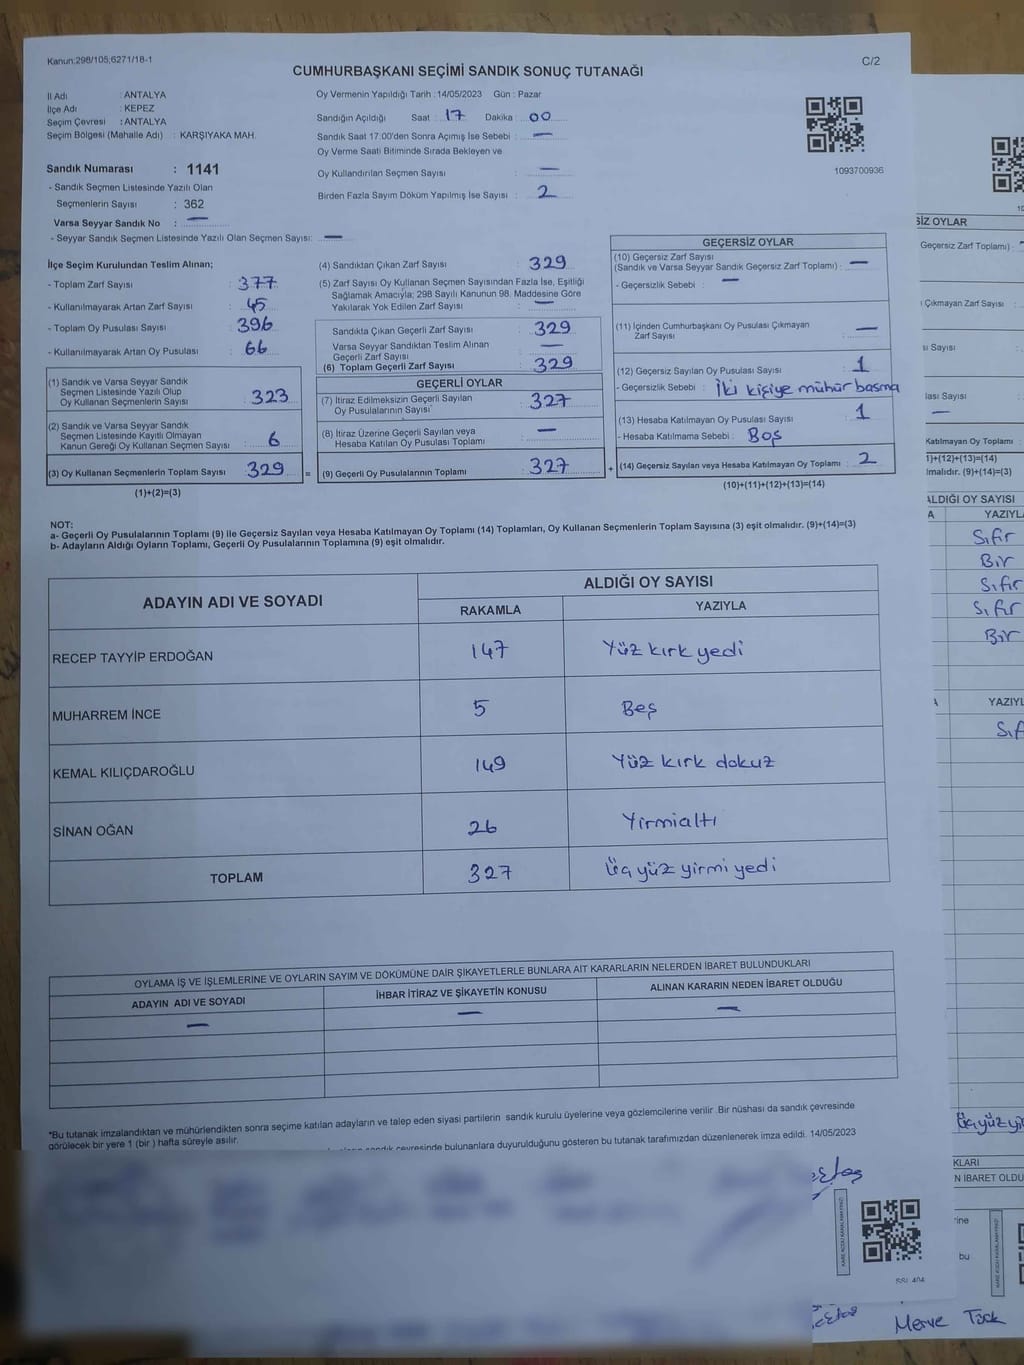 Kanun:298/105;6271/18-1
C/2
CUMHURBAŞKANI SEÇİMİ SANDIK SONUÇ TUTANAĞI
İl Adı : ANTALYA
İlçe Adı : KEPEZ
Seçim Çevresi : ANTALYA
Seçim Bölgesi (Mahalle Adı) : KARŞIYAKA MAH.
Oy Vermenin Yapıldığı Tarih :14/05/2023 Gün : Pazar
Sandığın Açıldığı Saat : 17 Dakika : 00
Sandık Saat 17.00'den Sonra Açımış İse Sebebi : —
Oy Verme Saati Bitiminde Sırada Bekleyen ve
Oy Kullandırılan Seçmen Sayısı : —
Birden Fazla Sayım Döküm Yapılmış İse Sayısı : 2
1093700936
Sandık Numarası : 1141
- Sandık Seçmen Listesinde Yazılı Olan
Seçmenlerin Sayısı : 362
Varsa Seyyar Sandık No : —
- Seyyar Sandık Seçmen Listesinde Yazılı Olan Seçmen Sayısı: —
İlçe Seçim Kurulundan Teslim Alınan;
- Toplam Zarf Sayısı : 377
- Kullanılmayarak Artan Zarf Sayısı : 45
- Toplam Oy Pusulası Sayısı : 396
- Kullanılmayarak Artan Oy Pusulası : 66
(1) Sandık ve Varsa Seyyar Sandık
Seçmen Listesinde Yazılı Olup
Oy Kullanan Seçmenlerin Sayısı : 323
(2) Sandık ve Varsa Seyyar Sandık
Seçmen Listesinde Kayıtlı Olmayan
Kanun Gereği Oy Kullanan Seçmen Sayısı : 6
(3) Oy Kullanan Seçmenlerin Toplam Sayısı : 329
(1)+(2)=(3)
(4) Sandıktan Çıkan Zarf Sayısı : 329
(5) Zarf Sayısı Oy Kullanan Seçmen Sayısından Fazla İse, Eşitliği
Sağlamak Amacıyla; 298 Sayılı Kanunun 98. Maddesine Göre
Yakılarak Yok Edilen Zarf Sayısı : —
Sandıkta Çıkan Geçerli Zarf Sayısı : 329
Varsa Seyyar Sandıktan Teslim Alınan
Geçerli Zarf Sayısı : —
(6) Toplam Geçerli Zarf Sayısı : 329
GEÇERLİ OYLAR
(7) İtiraz Edilmeksizin Geçerli Sayılan
Oy Pusulalarının Sayısı : 327
(8) İtiraz Üzerine Geçerli Sayılan veya
Hesaba Katılan Oy Pusulası Toplamı : —
= (9) Geçerli Oy Pusulalarının Toplamı : 327 +
GEÇERSİZ OYLAR
(10) Geçersiz Zarf Sayısı
(Sandık ve Varsa Seyyar Sandık Geçersiz Zarf Toplamı) : —
- Geçersizlik Sebebi : —
(11) İçinden Cumhurbaşkanı Oy Pusulası Çıkmayan
Zarf Sayısı : —
(12) Geçersiz Sayılan Oy Pusulası Sayısı : 1
- Geçersizlik Sebebi : İki kişiye mühür basma
(13) Hesaba Katılmayan Oy Pusulası Sayısı : 1
- Hesaba Katılmama Sebebi : Boş
(14) Geçersiz Sayılan veya Hesaba Katılmayan Oy Toplamı : 2
(10)+(11)+(12)+(13)=(14)
NOT:
a- Geçerli Oy Pusulalarının Toplamı (9) ile Geçersiz Sayılan veya Hesaba Katılmayan Oy Toplamı (14) Toplamları, Oy Kullanan Seçmenlerin Toplam Sayısına (3) eşit olmalıdır. (9)+(14)=(3)
b- Adayların Aldığı Oyların Toplamı, Geçerli Oy Pusulalarının Toplamına (9) eşit olmalıdır.
ADAYIN ADI VE SOYADI
ALDIĞI OY SAYISI
RAKAMLA YAZIYLA
RECEP TAYYİP ERDOĞAN 147 Yüz kırk yedi
MUHARREM İNCE 5 Beş
KEMAL KILIÇDAROĞLU 149 Yüz kırk dokuz
SİNAN OĞAN 26 Yirmialtı
TOPLAM 327 Üç yüz yirmi yedi
OYLAMA İŞ VE İŞLEMLERİNE VE OYLARIN SAYIM VE DÖKÜMÜNE DAİR ŞİKAYETLERLE BUNLARA AİT KARARLARIN NELERDEN İBARET BULUNDUKLARI
ADAYIN ADI VE SOYADI İHBAR İTİRAZ VE ŞİKAYETİN KONUSU ALINAN KARARIN NEDEN İBARET OLDUĞU
— — —
*Bu tutanak imzalandıktan ve mühürlendikten sonra seçime katılan adayların ve talep eden siyasi partilerin sandık kurulu üyelerine veya gözlemcilerine verilir .Bir nüshası da sandık çevresinde
görülecek bir yere 1 (bir ) hafta süreyle asılır.
çevresinde bulunanlara duyurulduğunu gösteren bu tutanak tarafımızdan düzenlenerek imza edildi. 14/05/2023
SİZ OYLAR
Geçersiz Zarf Toplamı) :
Çıkmayan Zarf Sayısı :
Sayısı :
Sayısı :
—
Katılmayan Oy Toplamı :
1)+(12)+(13)=(14)
lmalıdır. (9)+(14)=(3)
ALDIĞI OY SAYISI
A YAZIYLA
Sıfır
Bir
Sıfır
Sıfır
Bir
A YAZIYL
Sıf
Üçyüz yi
KLARI
N İBARET OLDU
rine
bu
Merve